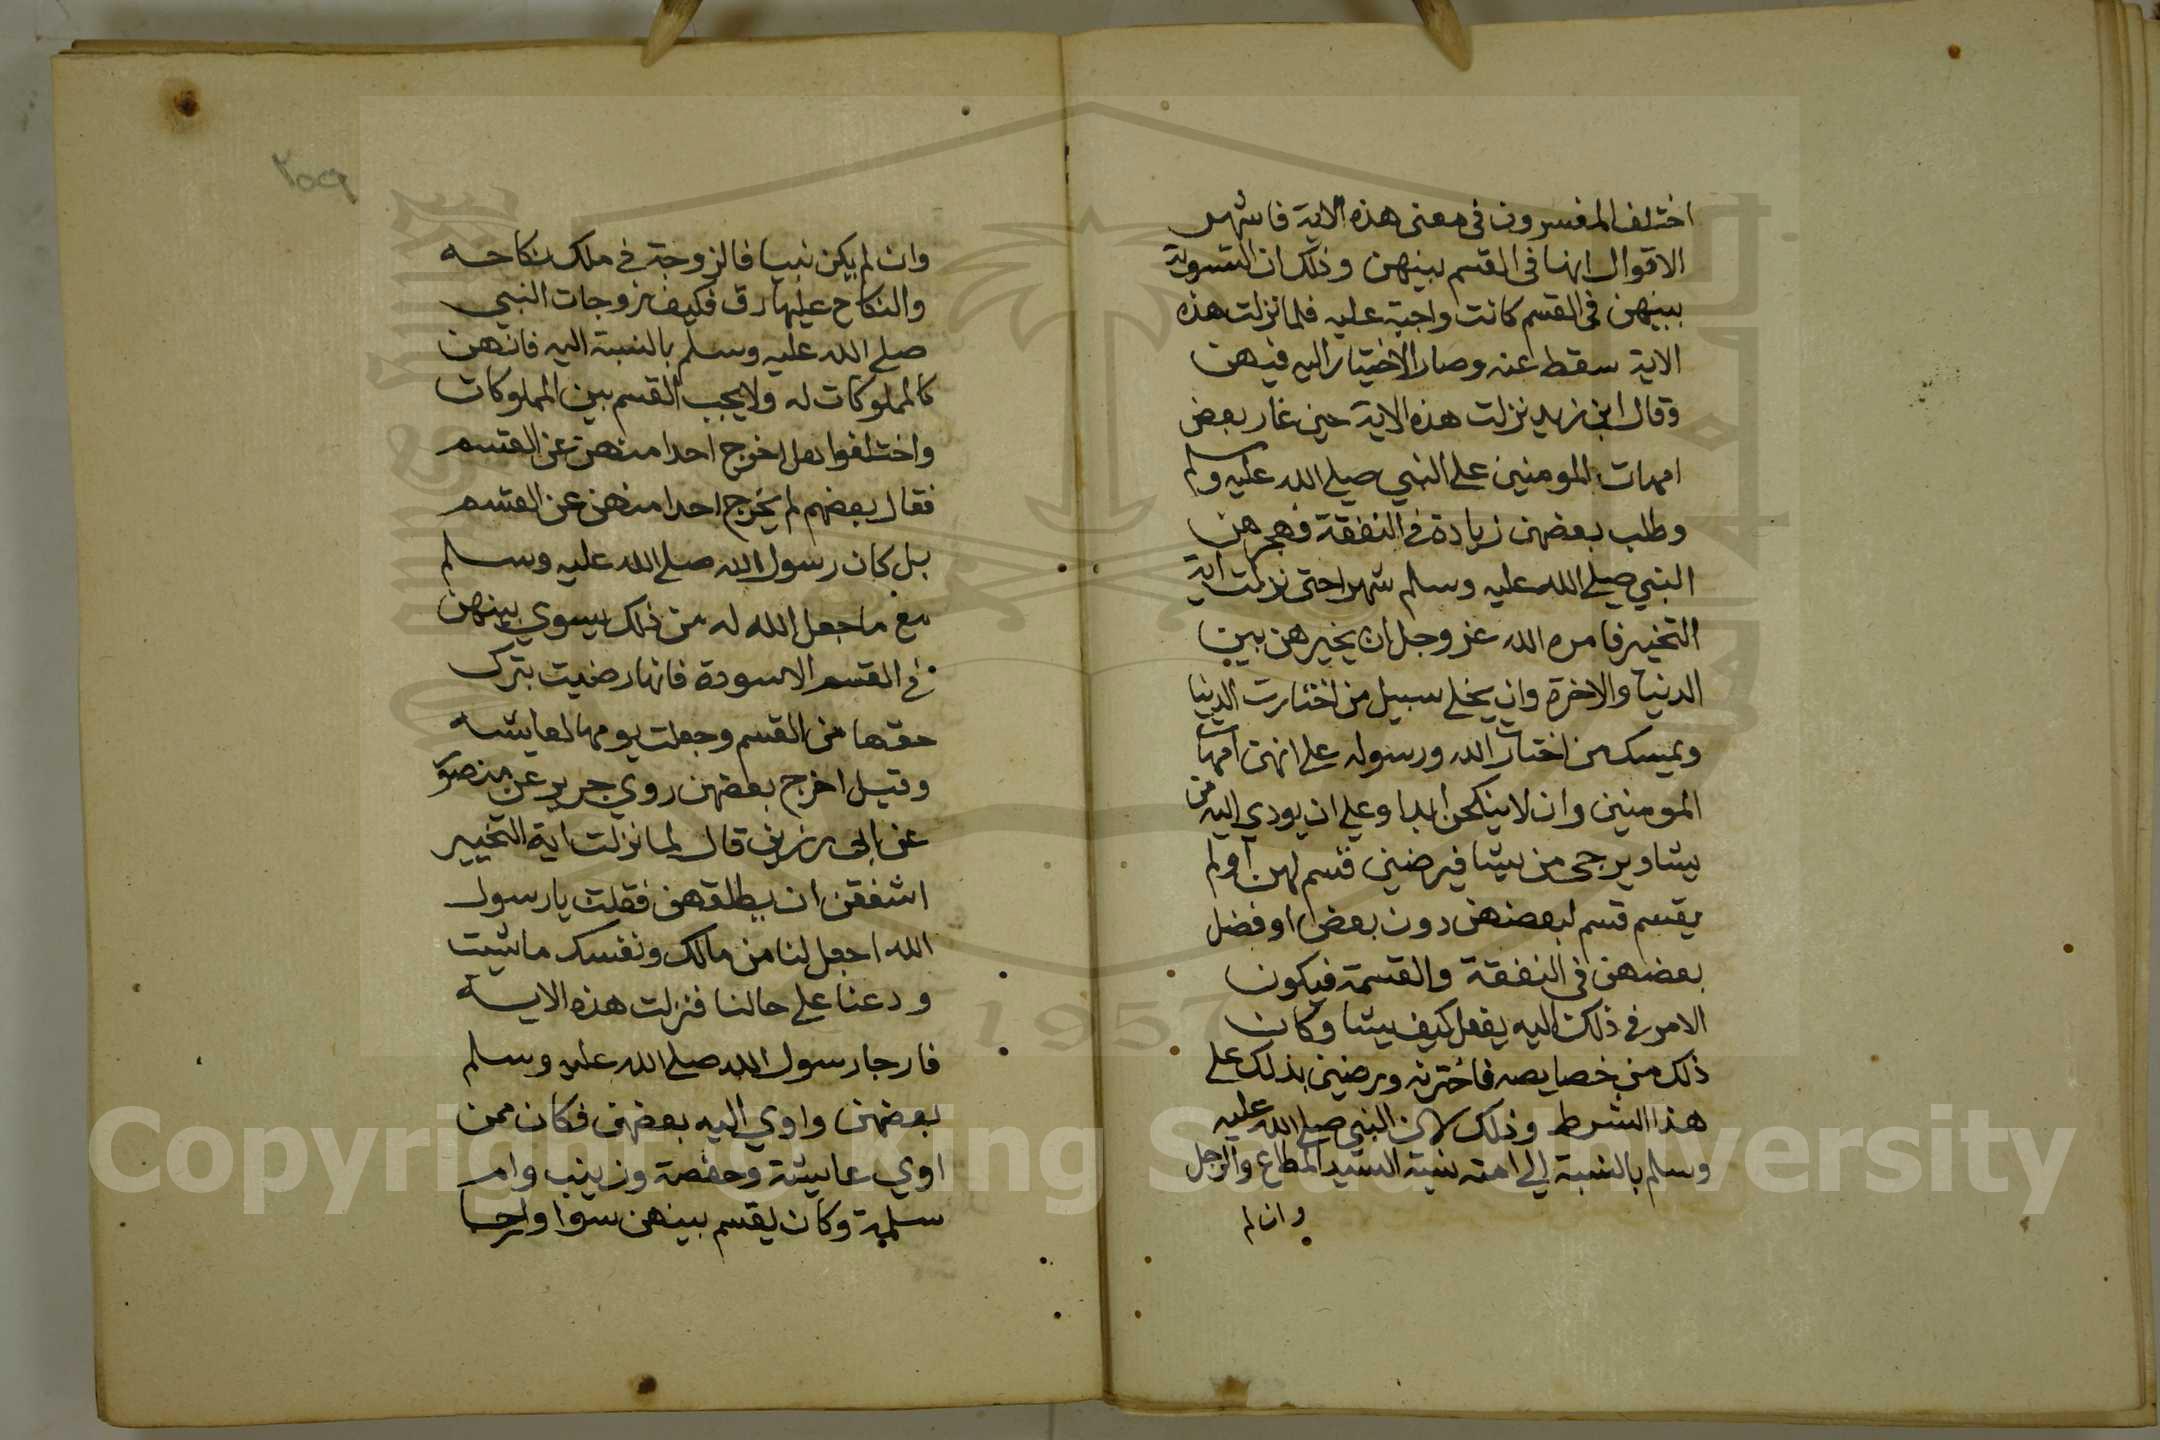 اختلف المفسرون فى معنى هذه الاية فاشهر
الاقوال انها فى القسم بينهن وذلك ان التسوية
بينهن فى القسم كانت واجبة عليه فلما نزلت هذه
الاية سقط عنه وصار الاختيار اليه فيهن
وقال ابن زيد نزلت هذه الاية حين غار بعض
امهات المومنين على النبي صلى الله عليه وسلم
وطلب بعضهن زيادة فى النفقة فهجرهن
النبي صلى الله عليه وسلم شهرا حتى نزلت اية
التخيير فامره الله عز وجل ان يخيرهن بين
الدنيا والاخرة وان يخلى سبيل من اختارت الدنيا
ويمسك من اختارت الله ورسوله على انهن امهات
المومنين وان لا ينكحن ابدا وعلى ان يودي اليه من
يشا ويرجى من يشا فيرضين قسم لهن او لم
يقسم قسم لبعضهن دون بعض او فضل
بعضهن فى النفقة والقسمة فيكون
الامر فى ذلك اليه يفعل كيف يشا وكان
ذلك من خصايصه فاخترنه ورضين بذلك على
هذا الشرط وذلك لان النبي صلى الله عليه
وسلم بالنسبة الى امته نسبة السيد المطاع والرجل
وان لم
٢٥٩
وان لم يكن نبيا فالزوجة فى ملك نكاحه
والنكاح عليها رق فكيف زوجات النبي
صلى الله عليه وسلم بالنسبة اليه فانهن
كالمملوكات له ولا يجب القسم بين المملوكات
واختلفوا هل اخرج احدا منهن عن القسم
فقال بعضهم لم يخرج احدا منهن عن القسم
بل كان رسول الله صلى الله عليه وسلم
مع ما جعل الله له من ذلك يسوي بينهن
فى القسم الا سودة فانها رضيت بترك
حقها من القسم وجعلت يومها لعايشه
وقيل اخرج بعضهن روي جرير عن منصور
عن ابى رزين قال لما نزلت اية التخيير
اشفقن ان يطلقهن فقلت يا رسول
الله اجعل لنا من مالك ونفسك ما شيت
ودعنا على حالنا فنزلت هذه الاية
فارجا رسول الله صلى الله عليه وسلم
بعضهن واوي اليه بعضهن فكان ممن
اوي عايشة وحفصة وزينب وام
سلمة وكان يقسم بينهن سوا وارجا
1957
Copyright © King Saud University